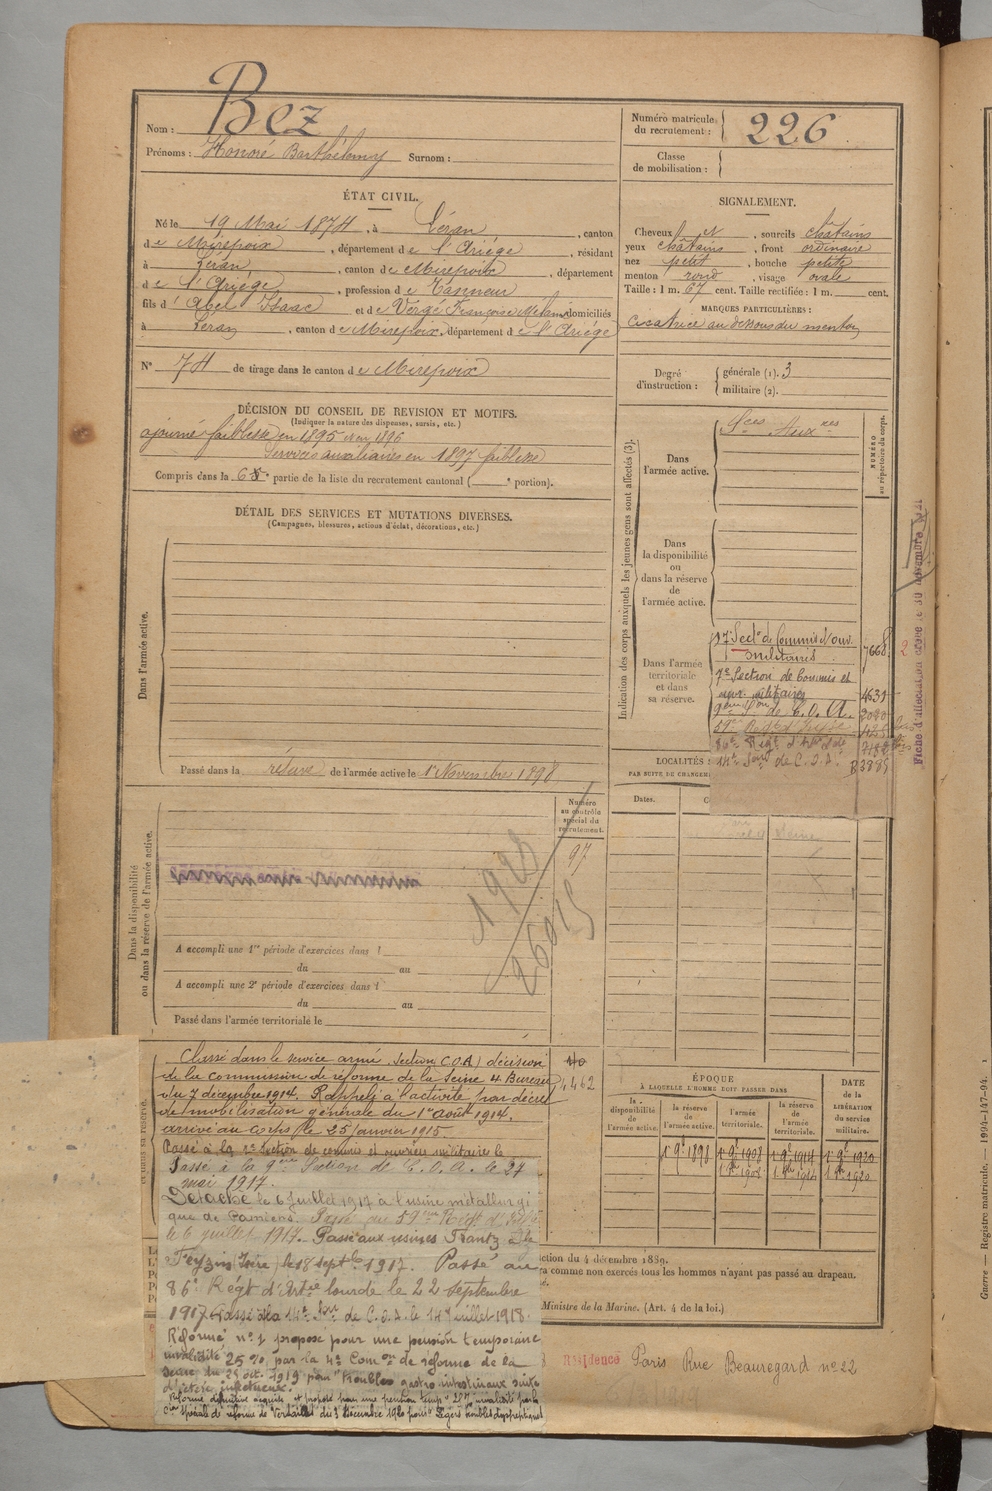 Nom : Bez
Prénoms : Honoré Barthélemy Surnom :
Numéro matricule du recrutement : 226
Classe de mobilisation :
ÉTAT CIVIL.
Né le 19 Mai 1874, à Léran, canton
de Mirepoix, département de l'Ariége, résidant
à Léran, canton de Mirepoix, département
de l'Ariége, profession de Tanneur
fils d' Abel Isaac et de Vergé Françoise Mélanie domiciliés
à Léran, canton de Mirepoix, département de l'Ariége
N° 74 de tirage dans le canton de Mirepoix
SIGNALEMENT.
Cheveux , sourcils châtains
yeux châtains, front ordinaire
nez petit, bouche petite
menton rond, visage ovale
Taille : 1 m. 67 cent. Taille rectifiée : 1 m. cent.
MARQUES PARTICULIÈRES :
cicatrice au dessous du menton
Degré d'instruction : générale (1). 3
militaire (2).
DÉCISION DU CONSEIL DE REVISION ET MOTIFS.
(Indiquer la nature des dispenses, sursis, etc.)
ajourné faiblesse en 1895 et en 1896
Services auxiliaires en 1897 faiblesse
Compris dans la 6e partie de la liste du recrutement cantonal ( e portion).
DÉTAIL DES SERVICES ET MUTATIONS DIVERSES.
(Campagnes, blessures, actions d'éclat, décorations, etc.)
Dans l'armée active.
Passé dans la réserve de l'armée active le 1er Novembre 1898
Indication des corps auxquels les jeunes gens sont affectés (3).
NUMÉRO au répertoire du corps.
Dans l'armée active.
Sces Auxres
Dans la disponibilité ou dans la réserve de l'armée active.
Dans l'armée territoriale et dans sa réserve.
17e Secton de Commis d'ouv.
militaires 7668
7e Section de Commis et
ouvr. militaires 4635
de C.O.A.
14e Sect de C.O.A.
Fiche d'affectation
LOCALITÉS
PAR SUITE DE CHANGEM
Dates.
Dans la disponibilité ou dans la réserve de l'armée active.
Numéro au contrôle spécial du recrutement.
97
1928
26015
A accompli une 1re période d'exercices dans l
du au
A accompli une 2e période d'exercices dans l
du au
Passé dans l'armée territoriale le
Classé dans le service armé (Section C.O.A) décision
de la commission de réforme de la Seine 4e Bureau
du 7 décembre 1914. Rappelé à l'activité par décret
de mobilisation générale du 1er août 1914.
arrivé au corps le 25 janvier 1915.
Passé à la 2e Section de commis et ouvriers militaires le
Passé à la 9eme Section de C.O.A. le 27
mai 1917.
Détaché le 6 juillet 1917 à l'usine métallurgi
que de Pamiers. Passé au 59eme Regt d'Infie
le 6 juillet 1917. Passé aux usines Frantz à
Feyzin (Isère) le 18 septbre 1917. Passé au
86e Régt d'Artie lourde le 22 septembre
1917. Passé à la 14e Son de C.O.A. le 14 juillet 1918.
Réformé n° 1 proposé pour une pension temporaire
invalidité 25 %, par la 4e Comon de réforme de la
Seine du 25 oct. 1919 pour "troubles gastro intestinaux suite
d'ictère infectieux".
Cion spéciale de réforme de Versailles du 3 Décembre 1920 pour légers troubles dyspeptiques
ÉPOQUE
À LAQUELLE L'HOMME DOIT PASSER DANS
la disponibilité de l'armée active.
la réserve de l'armée active.
l'armée territoriale.
la réserve de l'armée territoriale.
DATE de la LIBÉRATION du service militaire.
1er 9bre 1898
1er 9bre 1908
1er 9bre 1914
1er 9bre 1920
ction du 4 décembre 1889.
ra comme non exercés tous les hommes n'ayant pas passé au drapeau.
Ministre de la Marine. (Art. 4 de la loi.)
Résidence Paris Rue Beauregard no 22
Guerre — Registre matricule. — 1994-147-94.